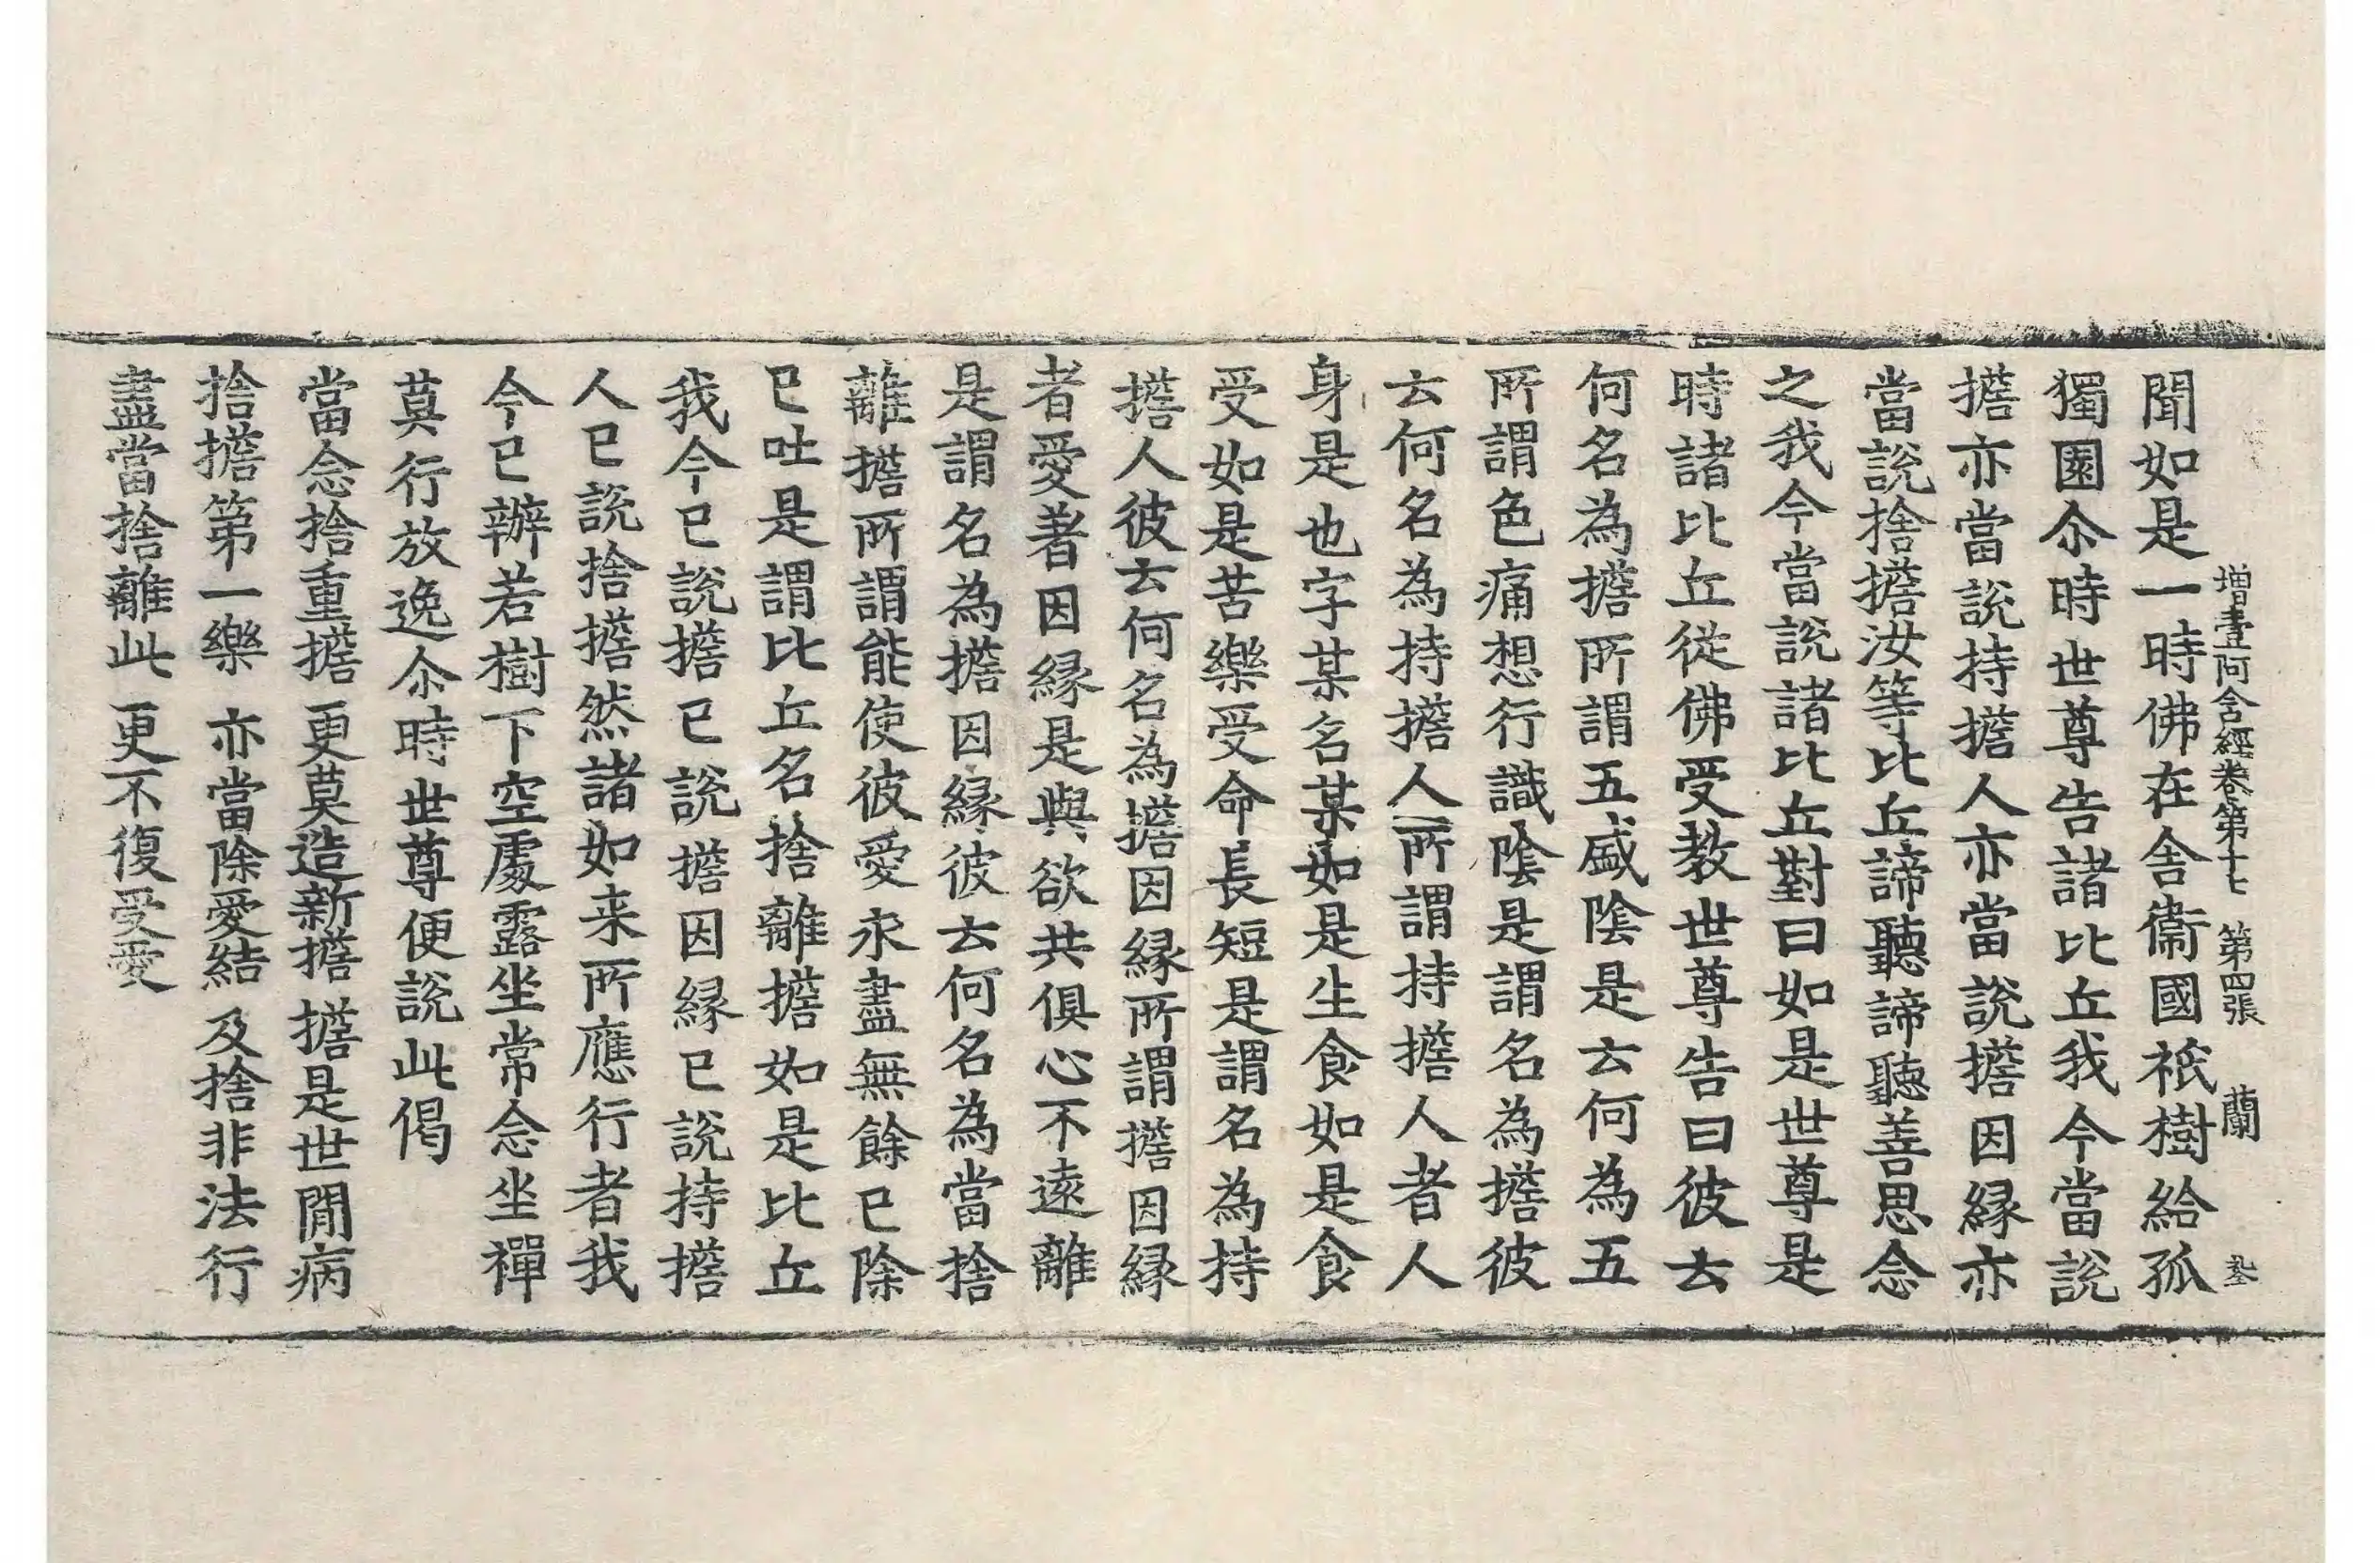 增壹阿含經卷第十七 第四張 蘭
聞如是一時佛在舍衞國祇樹給孤
獨園尒時世尊告諸比丘我今當說
擔亦當說持擔人亦當說擔因緣亦
當說捨擔汝等比丘諦聽諦聽善思念
之我今當說諸比丘對曰如是世尊是
時諸比丘從佛受教世尊告曰彼云
何名為擔所謂五盛陰是云何為五
所謂色痛想行識陰是謂名為擔彼
云何名為持擔人所謂持擔人者人
身是也字某名某如是生食如是食
受如是苦樂受命長短是謂名為持
擔人彼云何名為擔因緣所謂擔因緣
者愛著因緣是與欲共俱心不遠離
是謂名為擔因緣彼云何名為當捨
離擔所謂能使彼愛永盡無餘已除
已吐是謂比丘名捨離擔如是比丘
我今已說擔已說擔因緣已說持擔
人已說捨擔然諸如来所應行者我
今已辦若樹下空處露坐常念坐禪
莫行放逸尒時世尊便說此偈
當念捨重擔 更莫造新擔 擔是世閒病
捨擔第一樂 亦當除愛結 及捨非法行
盡當捨離此 更不復受愛